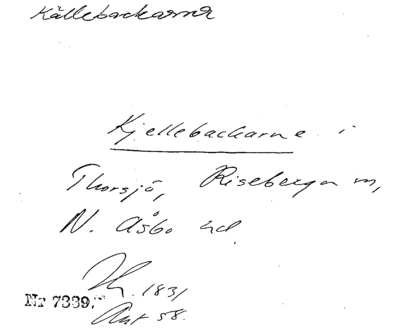 Källebackarna
Kjellebackarne i
Thorsjö, Riseberga sn,
N. Åsbo hd.
Lk. 1831
Akt 58.
Nr 7389.